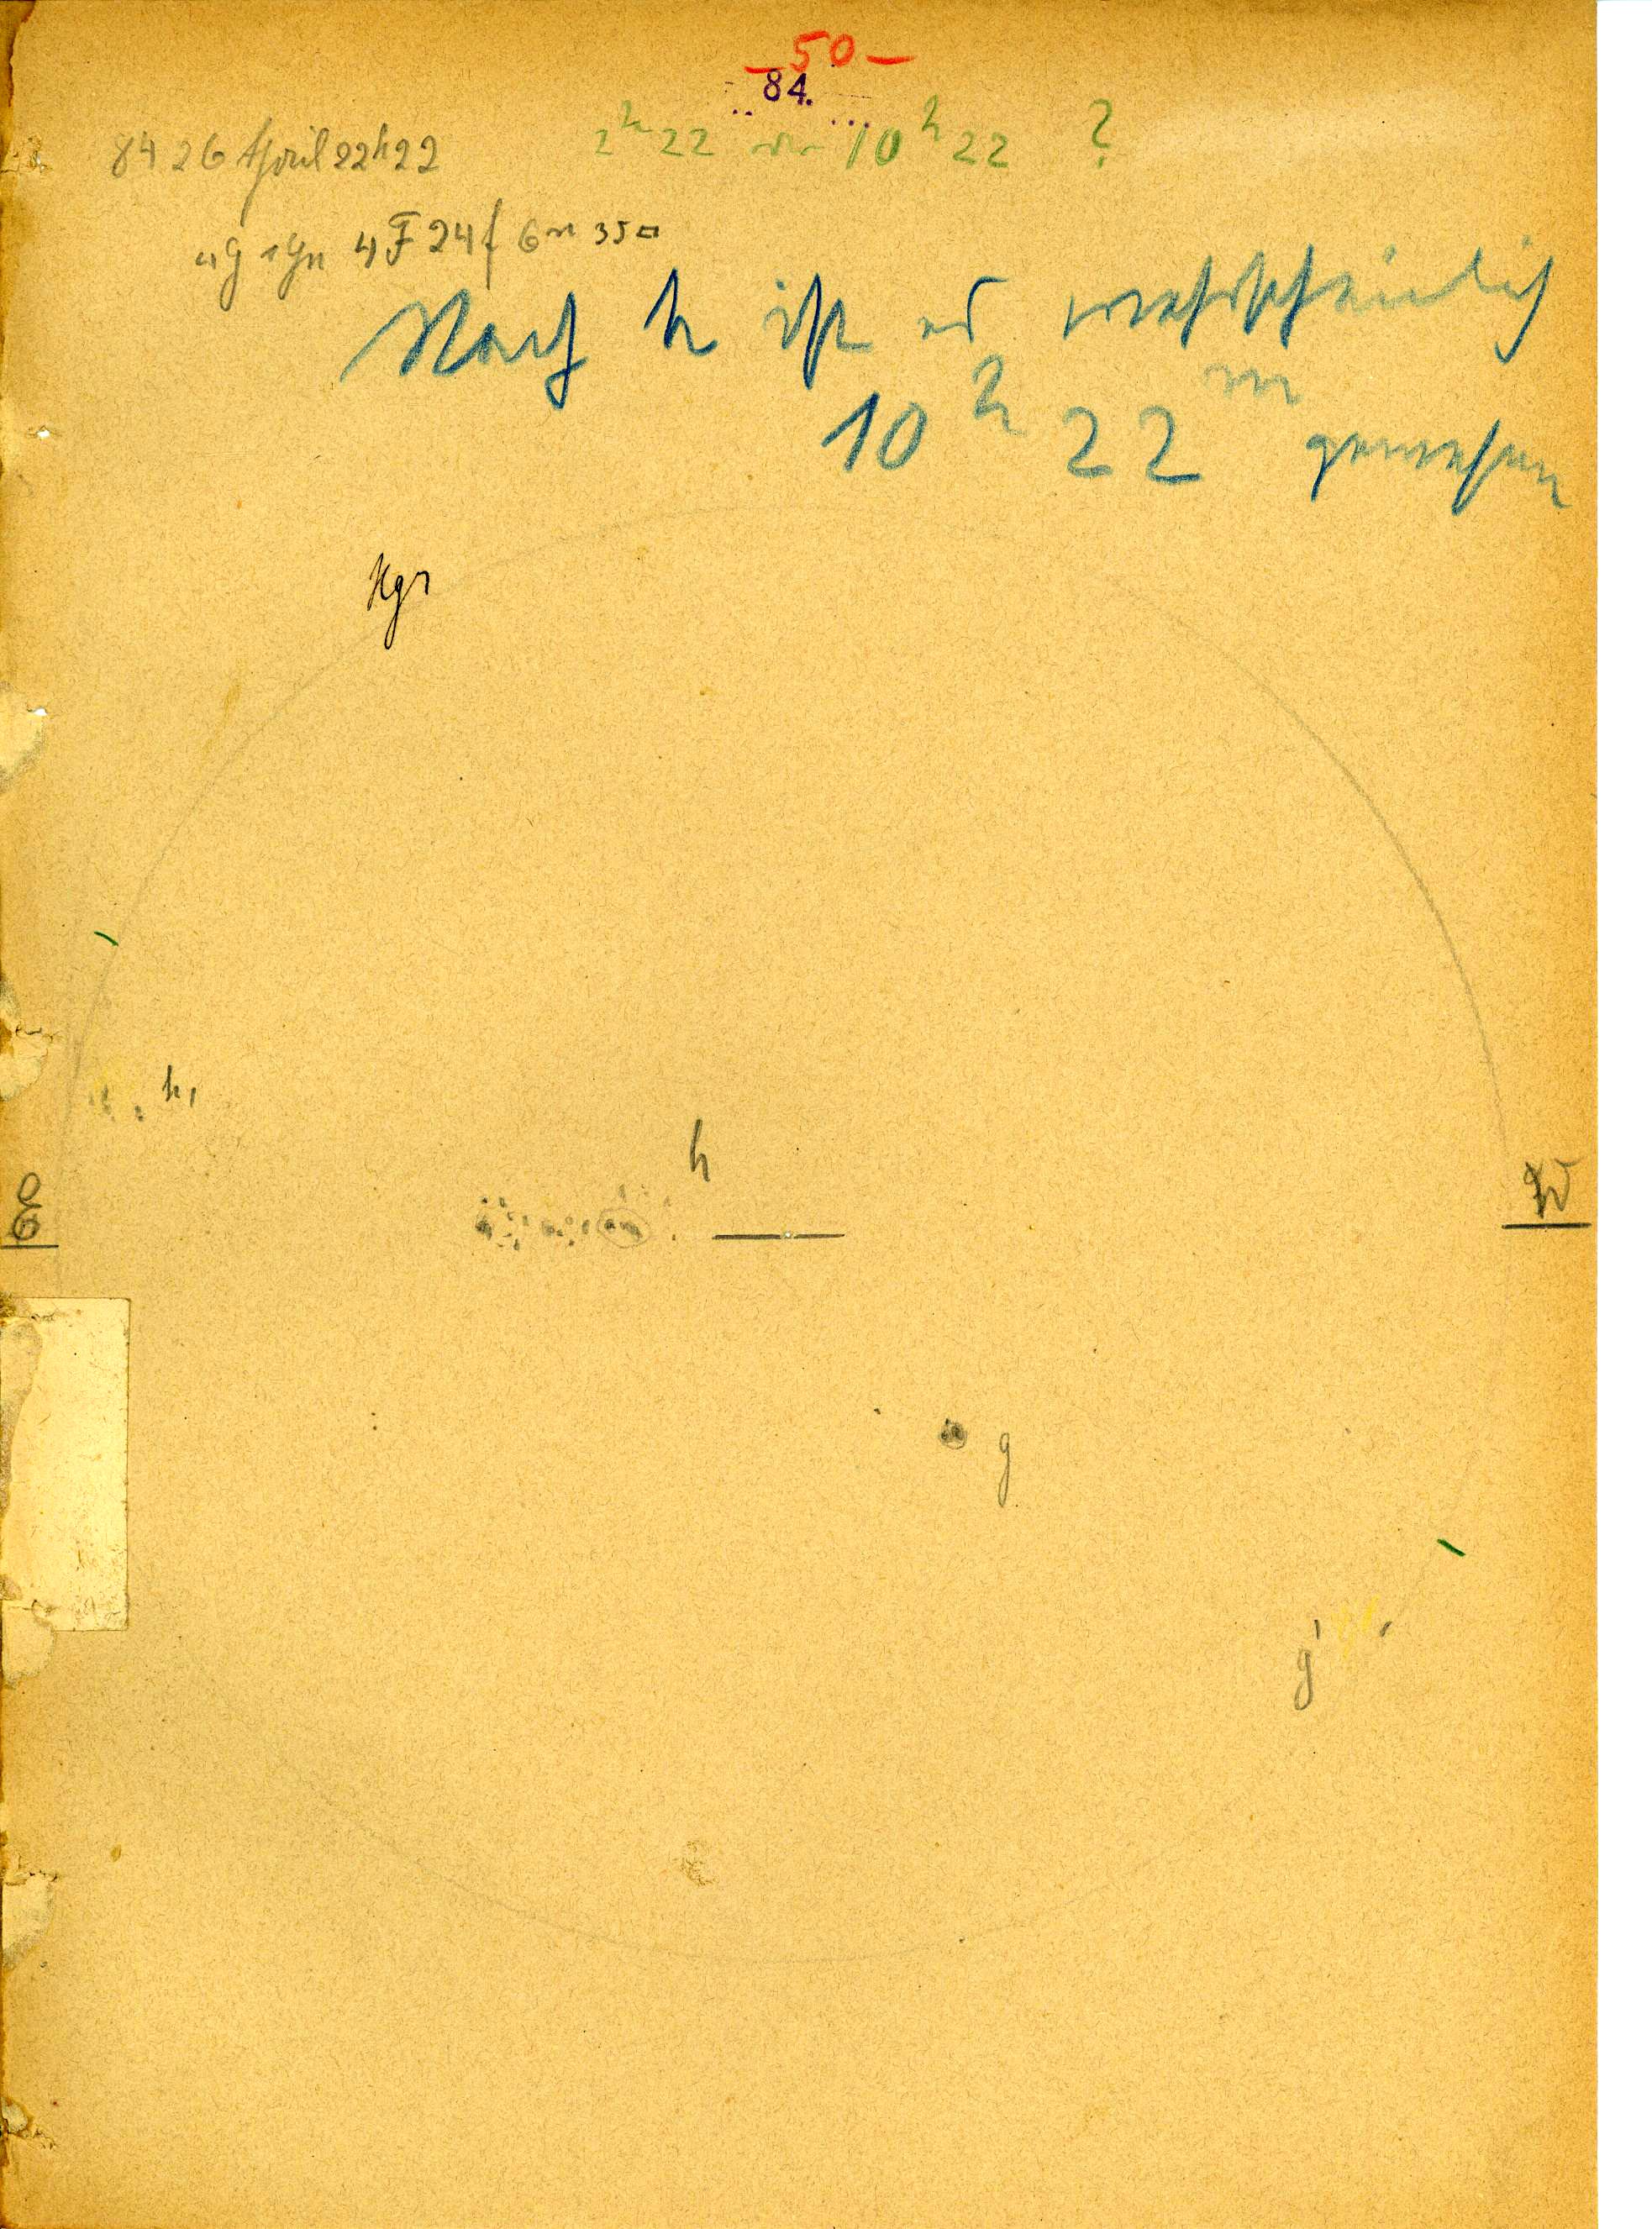 —50—
84.
84 26 April 22h22
2h 22 oder 10h 22 ?
4g 1gn 4F 24f 6n 35□
Nach h ist es wahrscheinlich
10h 22m gewesen
h,
h
E
W
g
g'